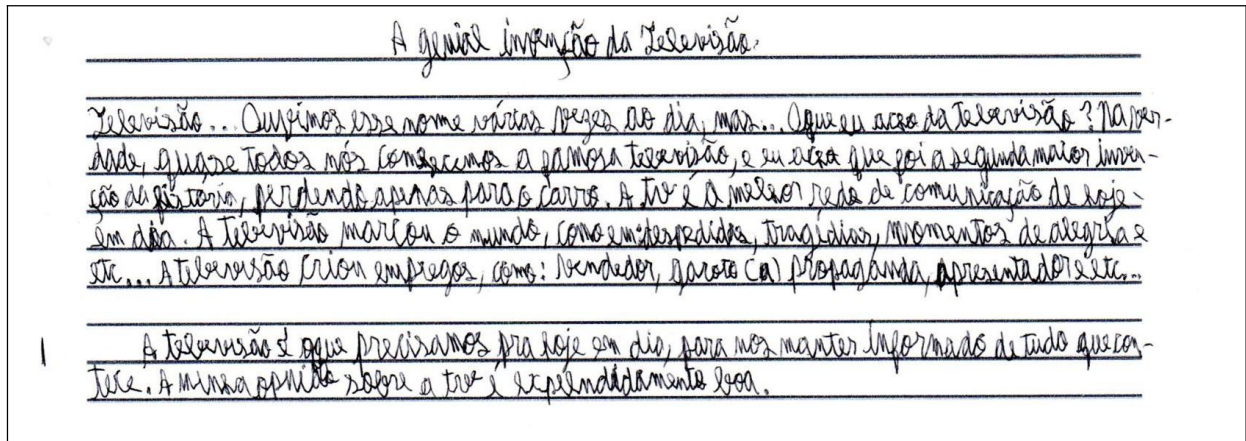 A genial invenção da Televisão.
Televisão... Ouvimos esse nome várias vezes ao dia, mas... Oque eu acho da televisão? Na ver-
dade, quase todos nós conhecemos a famosa televisão, e eu acho que foi a segunda maior inven-
ção da história, perdendo apenas para o carro. A tv é a melhor rede de comunicação de hoje
em dia. A televisão marcou o mundo, como em: despedidas, tragédias, momentos de alegria e
etc... A televisão criou empregos, como: vendedor, garoto (a) propaganda, apresentador e etc...
A televisão é oque precisamos pra hoje em dia, para nos manter informado de tudo que con-
tece. A minha opnião sobre a tv é expelndidamente boa.